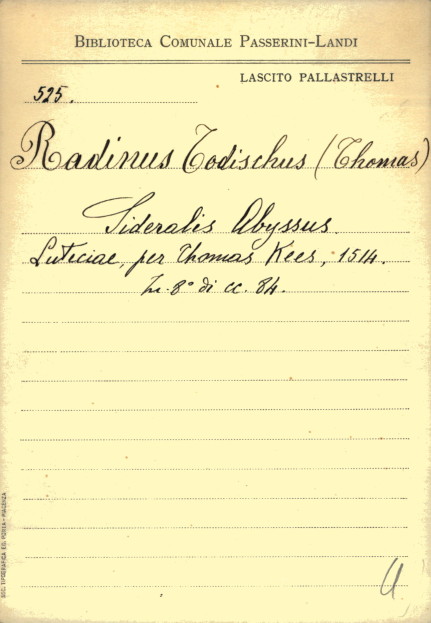 BIBLIOTECA COMUNALE PASSERINI-LANDI
LASCITO PALLASTRELLI
525.
Radinus Todischus (Thomas)
Sideralis Abyssus.
Luteciae, per Thomas Kees, 1514.
In-8° di cc. 84.
SOC. TIPOGRAFICA ED. PORTA - PIACENZA